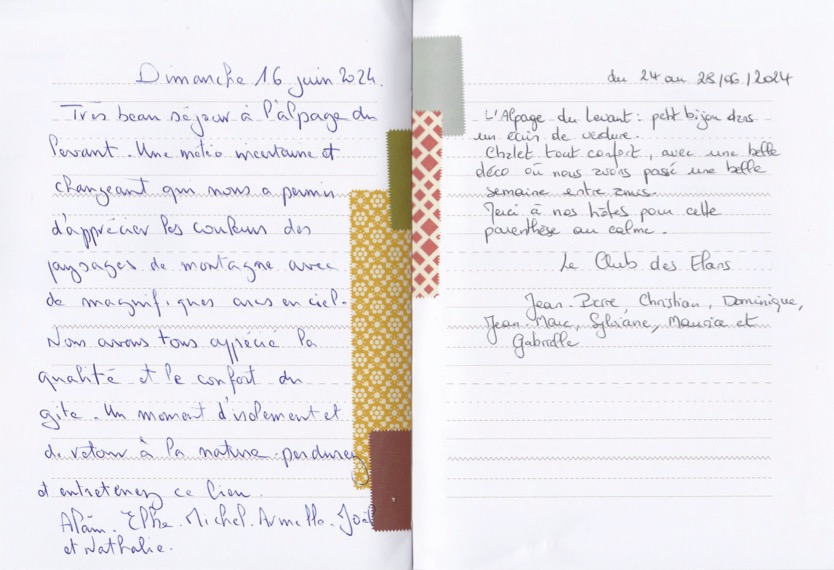 Dimanche 16 juin 2024.
Très beau séjour à l'alpage du
Levant. Une météo incertaine et
changeant qui nous a permis
d'apprécier les couleurs des
paysages de montagne avec
de magnifiques arcs en ciel.
Nous avons tous apprécié la
qualité et le confort du
gîte. Un moment d'isolement et
de retour à la nature. perdurez
et entretenez ce lien.
Alain. Michel. Armelle. Joël
et Nathalie.
du 24 au 28/06/2024
L'Alpage du Levant : petit bijou dans
un écrin de verdure.
Chalet tout confort, avec une belle
déco où nous avons passé une belle
semaine entre amis.
Merci à nos hôtes pour cette
parenthèse au calme.
Le Club des Elans
Jean-Pierre, Christian, Dominique,
Jean-Marc, Sylviane, Maurice et
Gabrielle